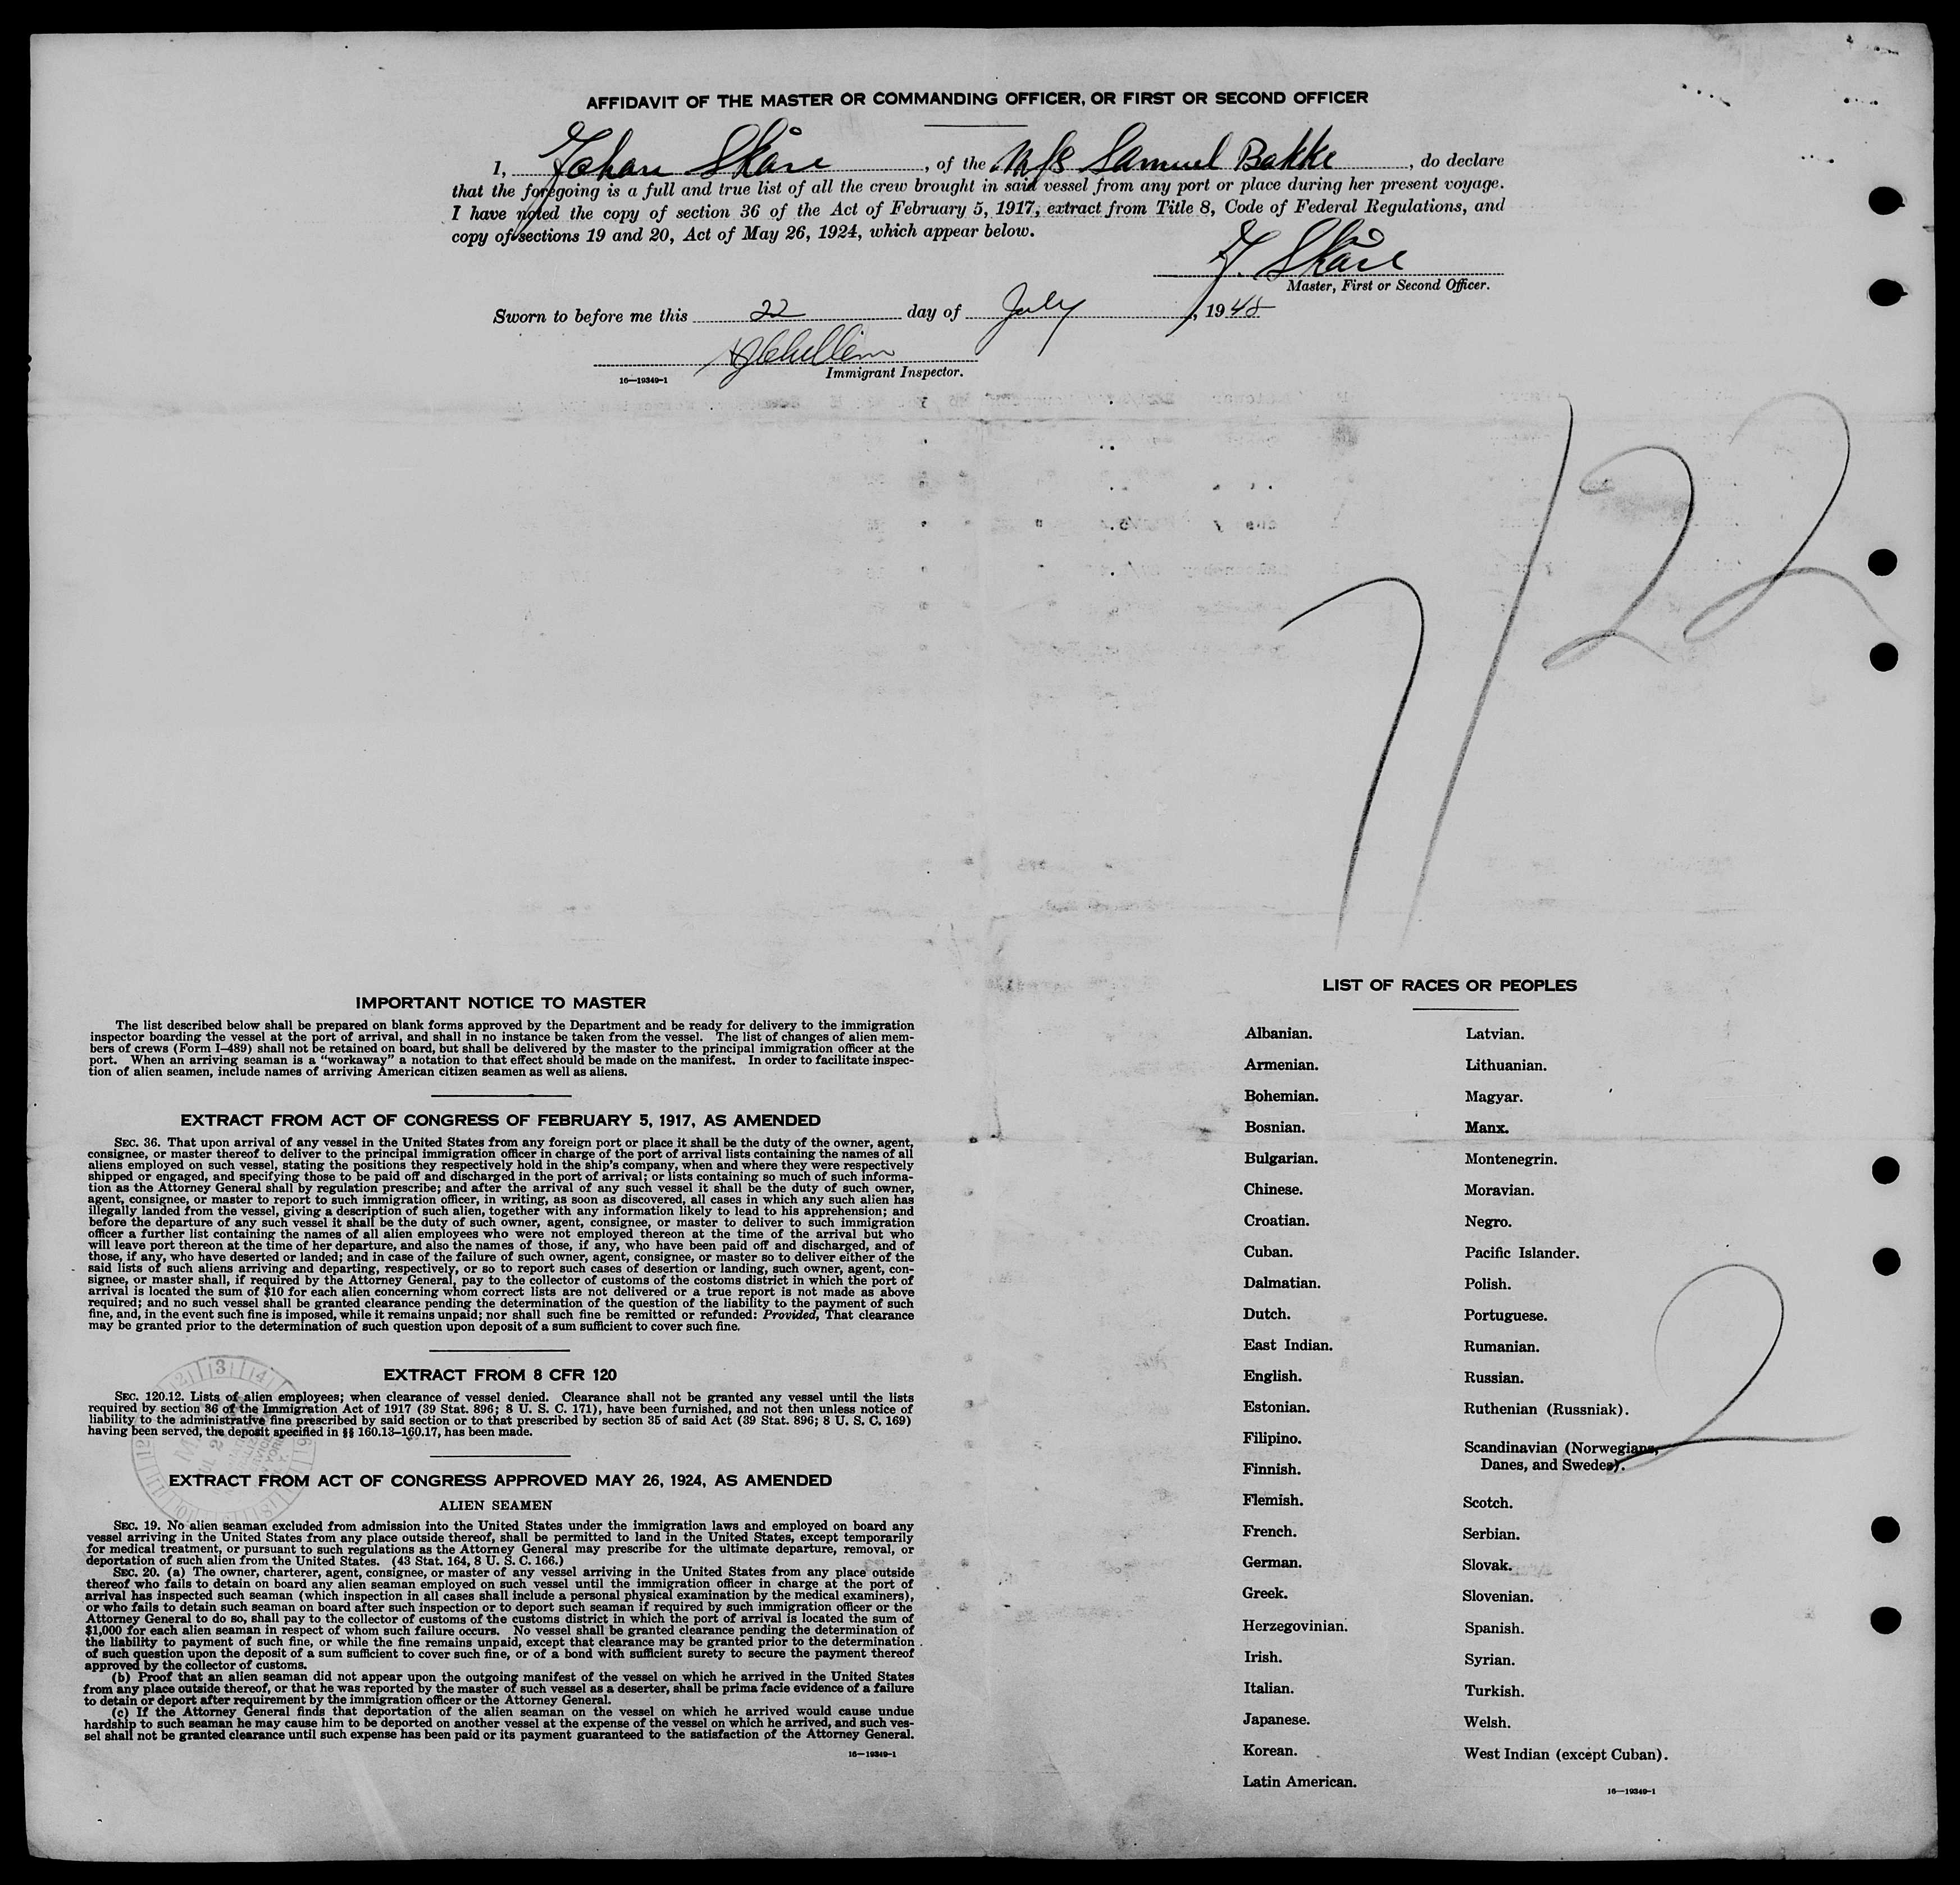 AFFIDAVIT OF THE MASTER OR COMMANDING OFFICER, OR FIRST OR SECOND OFFICER
I, Johan Skåre, of the M/S Samuel Bakke, do declare
that the foregoing is a full and true list of all the crew brought in said vessel from any port or place during her present voyage.
I have noted the copy of section 36 of the Act of February 5, 1917, extract from Title 8, Code of Federal Regulations, and
copy of sections 19 and 20, Act of May 26, 1924, which appear below.
J. Skåre
Master, First or Second Officer.
Sworn to before me this 22 day of July, 1948
Immigrant Inspector.
16—19349-1
7/22
IMPORTANT NOTICE TO MASTER
The list described below shall be prepared on blank forms approved by the Department and be ready for delivery to the immigration
inspector boarding the vessel at the port of arrival, and shall in no instance be taken from the vessel. The list of changes of alien mem-
bers of crews (Form I-489) shall not be retained on board, but shall be delivered by the master to the principal immigration officer at the
port. When an arriving seaman is a "workaway" a notation to that effect should be made on the manifest. In order to facilitate inspec-
tion of alien seamen, include names of arriving American citizen seamen as well as aliens.
EXTRACT FROM ACT OF CONGRESS OF FEBRUARY 5, 1917, AS AMENDED
SEC. 36. That upon arrival of any vessel in the United States from any foreign port or place it shall be the duty of the owner, agent,
consignee, or master thereof to deliver to the principal immigration officer in charge of the port of arrival lists containing the names of all
aliens employed on such vessel, stating the positions they respectively hold in the ship's company, when and where they were respectively
shipped or engaged, and specifying those to be paid off and discharged in the port of arrival; or lists containing so much of such informa-
tion as the Attorney General shall by regulation prescribe; and after the arrival of any such vessel it shall be the duty of such owner,
agent, consignee, or master to report to such immigration officer, in writing, as soon as discovered, all cases in which any such alien has
illegally landed from the vessel, giving a description of such alien, together with any information likely to lead to his apprehension; and
before the departure of any such vessel it shall be the duty of such owner, agent, consignee, or master to deliver to such immigration
officer a further list containing the names of all alien employees who were not employed thereon at the time of the arrival but who
will leave port thereon at the time of her departure, and also the names of those, if any, who have been paid off and discharged, and of
those, if any, who have deserted or landed; and in case of the failure of such owner, agent, consignee, or master so to deliver either of the
said lists of such aliens arriving and departing, respectively, or so to report such cases of desertion or landing, such owner, agent, con-
signee, or master shall, if required by the Attorney General, pay to the collector of customs of the costoms district in which the port of
arrival is located the sum of $10 for each alien concerning whom correct lists are not delivered or a true report is not made as above
required; and no such vessel shall be granted clearance pending the determination of the question of the liability to the payment of such
fine, and, in the event such fine is imposed, while it remains unpaid; nor shall such fine be remitted or refunded: Provided, That clearance
may be granted prior to the determination of such question upon deposit of a sum sufficient to cover such fine.
EXTRACT FROM 8 CFR 120
SEC. 120.12. Lists of alien employees; when clearance of vessel denied. Clearance shall not be granted any vessel until the lists
required by section 36 of the Immigration Act of 1917 (39 Stat. 896; 8 U. S. C. 171), have been furnished, and not then unless notice of
liability to the administrative fine prescribed by said section or to that prescribed by section 35 of said Act (39 Stat. 896; 8 U. S. C. 169)
having been served, the deposit specified in §§ 160.13-160.17, has been made.
EXTRACT FROM ACT OF CONGRESS APPROVED MAY 26, 1924, AS AMENDED
ALIEN SEAMEN
SEC. 19. No alien seaman excluded from admission into the United States under the immigration laws and employed on board any
vessel arriving in the United States from any place outside thereof, shall be permitted to land in the United States, except temporarily
for medical treatment, or pursuant to such regulations as the Attorney General may prescribe for the ultimate departure, removal, or
deportation of such alien from the United States. (43 Stat. 164, 8 U. S. C. 166.)
SEC. 20. (a) The owner, charterer, agent, consignee, or master of any vessel arriving in the United States from any place outside
thereof who fails to detain on board any alien seaman employed on such vessel until the immigration officer in charge at the port of
arrival has inspected such seaman (which inspection in all cases shall include a personal physical examination by the medical examiners),
or who fails to detain such seaman on board after such inspection or to deport such seaman if required by such immigration officer or the
Attorney General to do so, shall pay to the collector of customs of the customs district in which the port of arrival is located the sum of
$1,000 for each alien seaman in respect of whom such failure occurs. No vessel shall be granted clearance pending the determination of
the liability to payment of such fine, or while the fine remains unpaid, except that clearance may be granted prior to the determination
of such question upon the deposit of a sum sufficient to cover such fine, or of a bond with sufficient surety to secure the payment thereof
approved by the collector of customs.
(b) Proof that an alien seaman did not appear upon the outgoing manifest of the vessel on which he arrived in the United States
from any place outside thereof, or that he was reported by the master of such vessel as a deserter, shall be prima facie evidence of a failure
to detain or deport after requirement by the immigration officer or the Attorney General.
(c) If the Attorney General finds that deportation of the alien seaman on the vessel on which he arrived would cause undue
hardship to such seaman he may cause him to be deported on another vessel at the expense of the vessel on which he arrived, and such ves-
sel shall not be granted clearance until such expense has been paid or its payment guaranteed to the satisfaction of the Attorney General.
16—19349-1
LIST OF RACES OR PEOPLES
Albanian.
Armenian.
Bohemian.
Bosnian.
Bulgarian.
Chinese.
Croatian.
Cuban.
Dalmatian.
Dutch.
East Indian.
English.
Estonian.
Filipino.
Finnish.
Flemish.
French.
German.
Greek.
Herzegovinian.
Irish.
Italian.
Japanese.
Korean.
Latin American.
Latvian.
Lithuanian.
Magyar.
Manx.
Montenegrin.
Moravian.
Negro.
Pacific Islander.
Polish.
Portuguese.
Rumanian.
Russian.
Ruthenian (Russniak).
Scandinavian (Norwegians,
Danes, and Swedes).
Scotch.
Serbian.
Slovak.
Slovenian.
Spanish.
Syrian.
Turkish.
Welsh.
West Indian (except Cuban).
2
16—19349-1